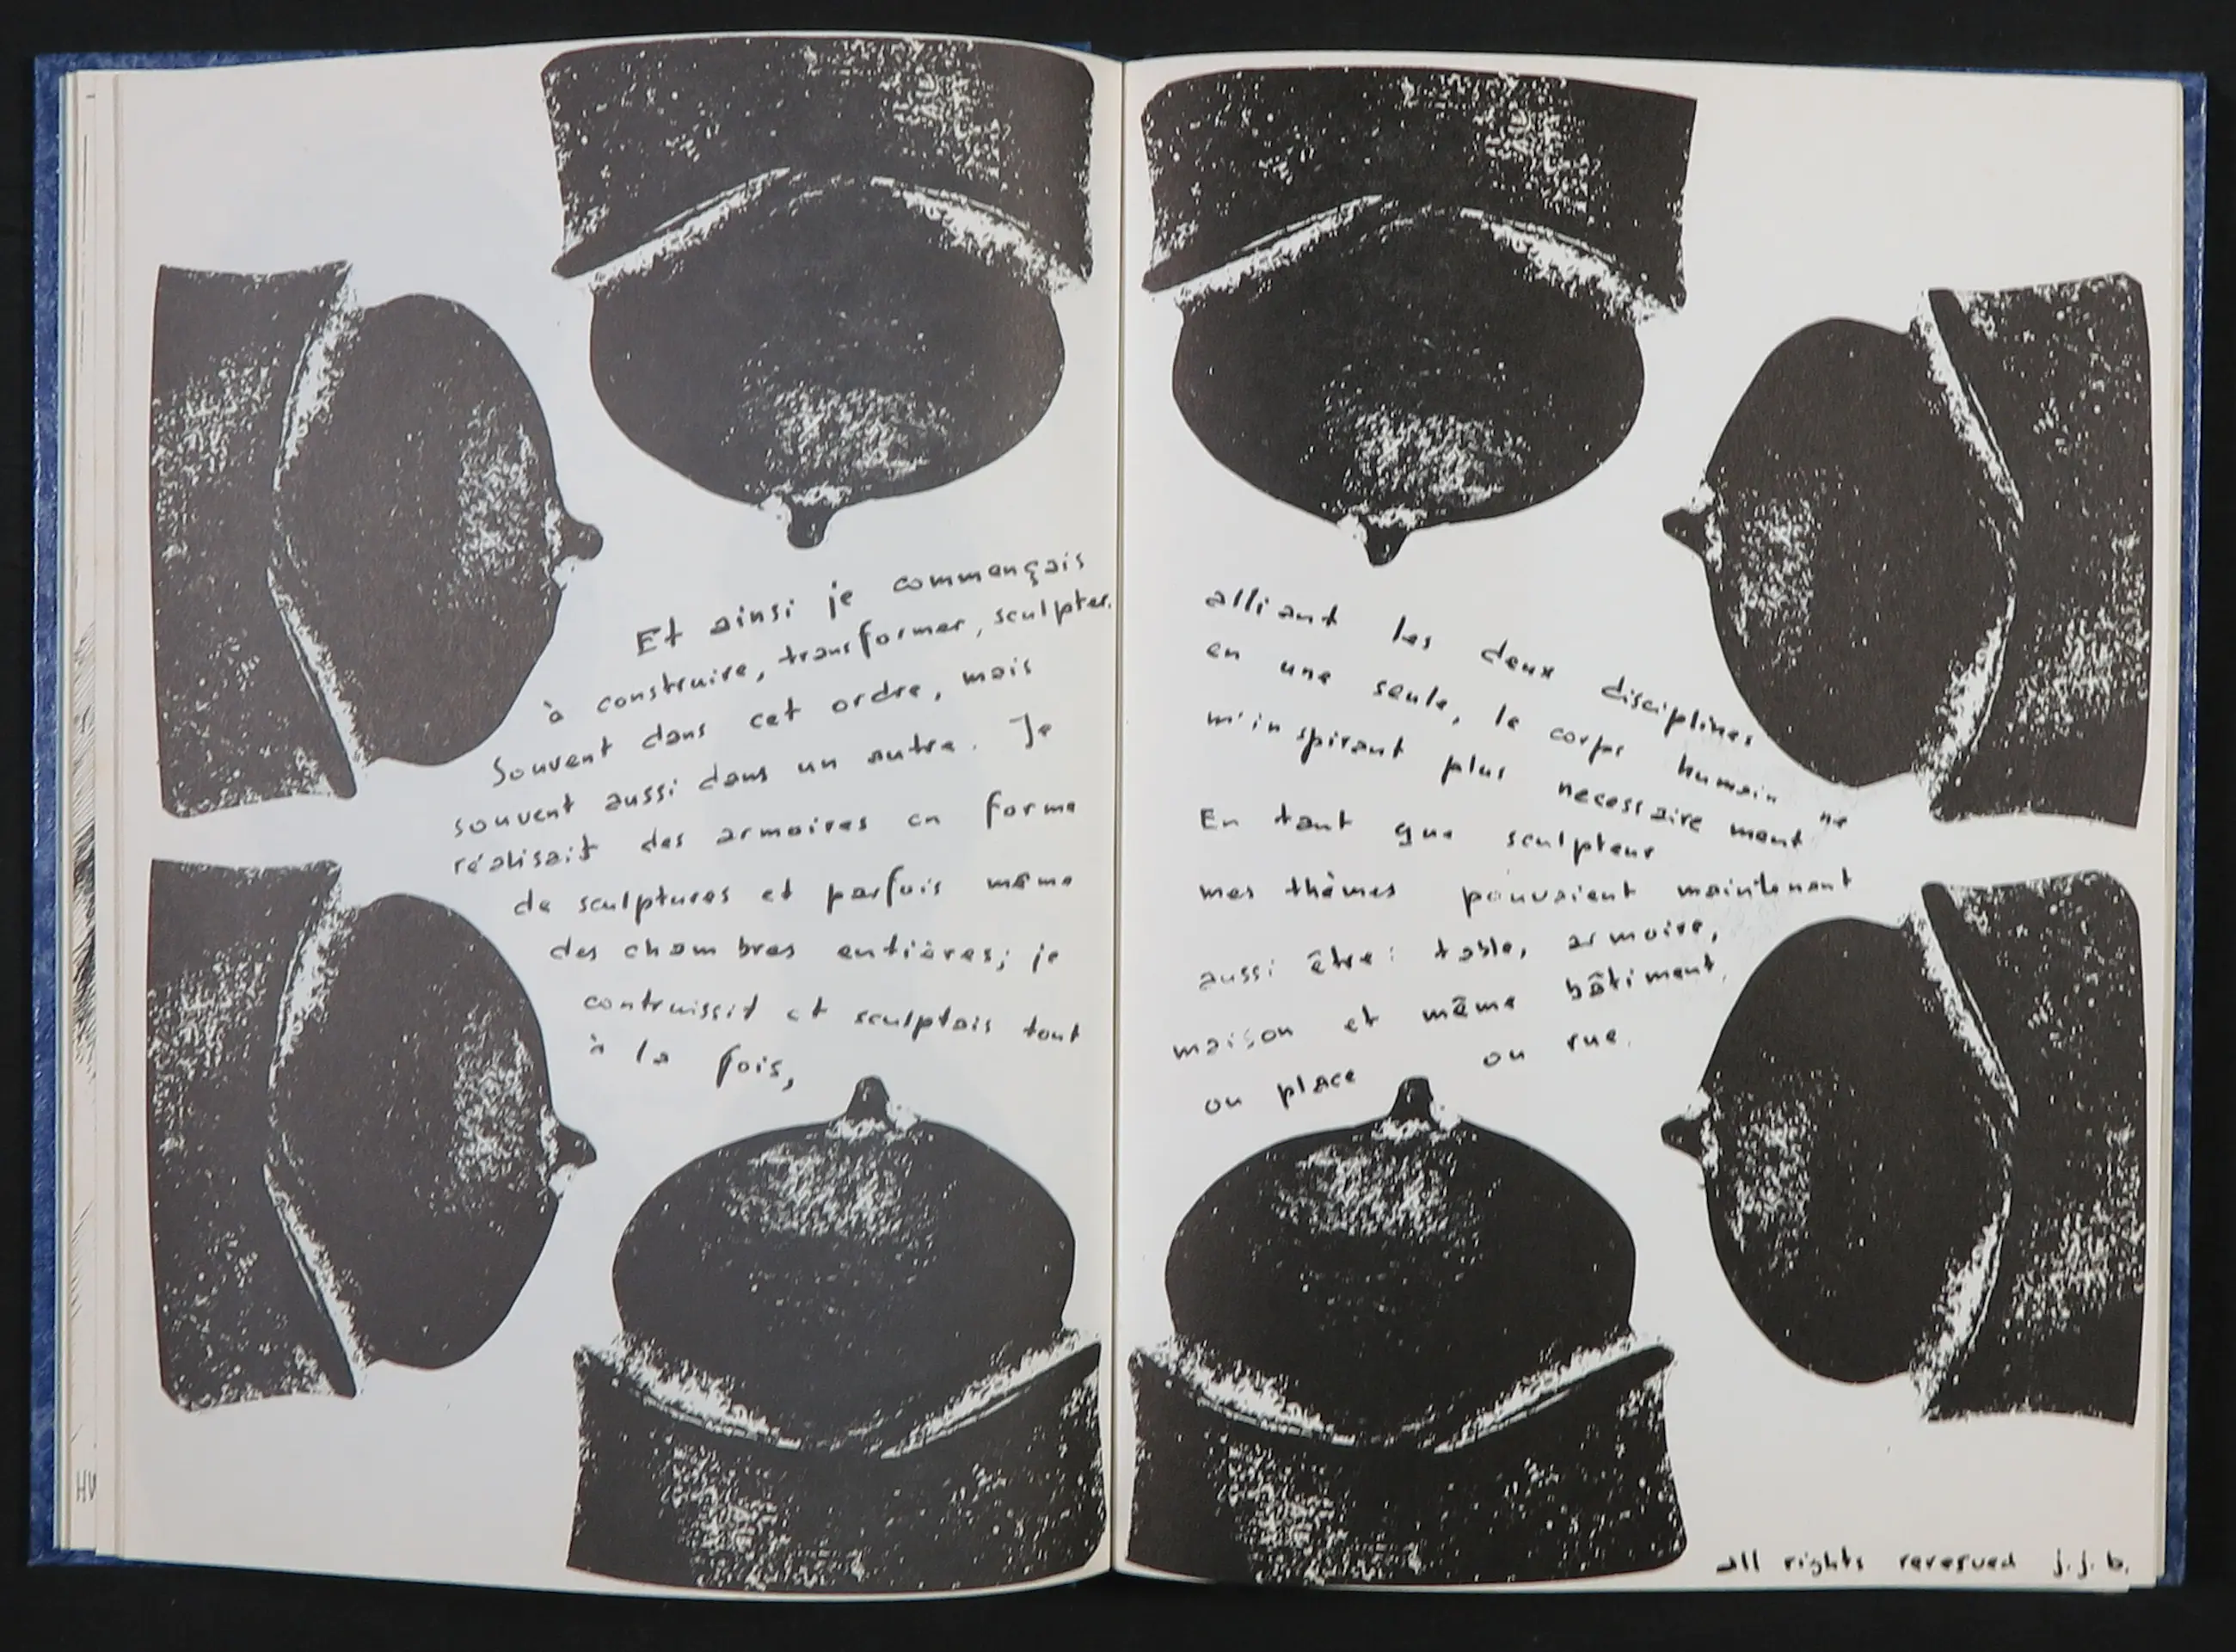 Et ainsi je commençais
à construire, transformer, sculpter.
Souvent dans cet ordre, mais
souvent aussi dans un autre. Je
réalisait des armoires en forme
de sculptures et parfois même
des chambres entières; je
contruissit et sculptais tout
à la fois,
alliant les deux disciplines
en une seule, le corps humain ne
m'inspirant plus necessairement
En tant que sculpteur
mes thèmes pouvaient maintenant
aussi être: table, armoire,
maison et même bâtiment,
ou place ou rue.
all rights reresued j.j.b.
HU